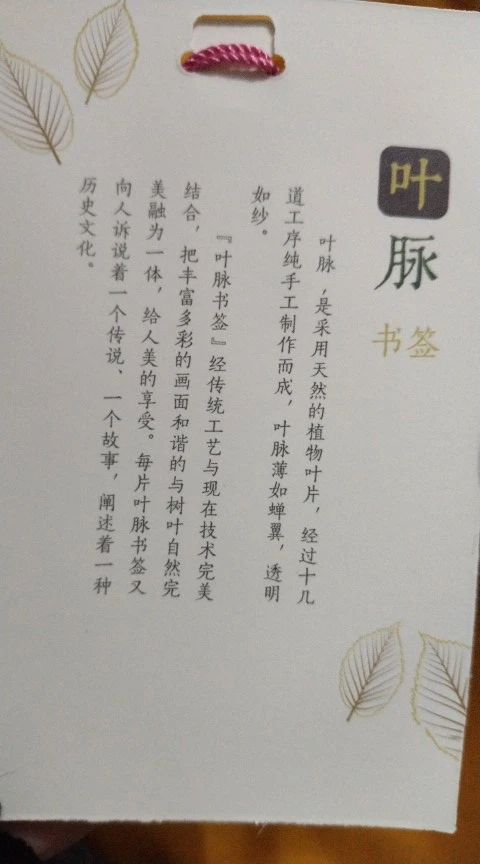 叶脉
书签
叶脉，是采用天然的植物叶片，经过十几
道工序纯手工制作而成，叶脉薄如蝉翼，透明
如纱。
『叶脉书签』经传统工艺与现在技术完美
结合，把丰富多彩的画面和谐的与树叶自然完
美融为一体，给人美的享受。每片叶脉书签又
向人诉说着一个传说、一个故事，阐述着一种
历史文化。